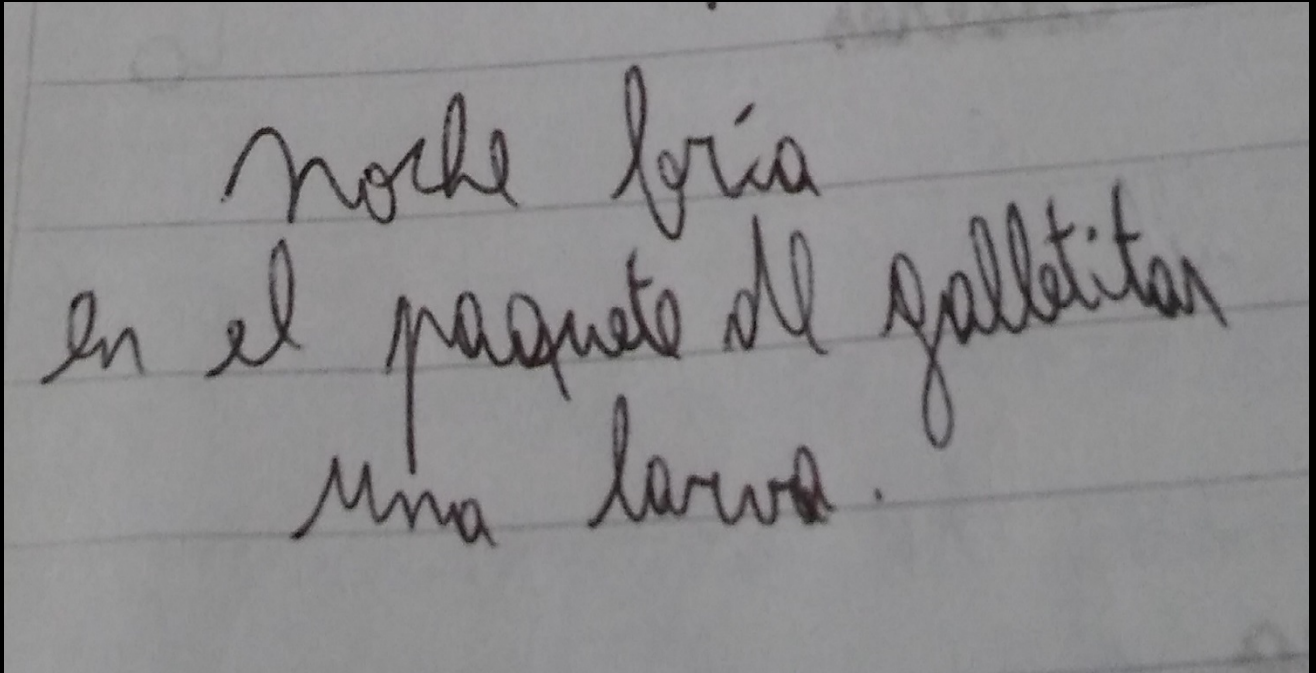 noche fría
en el paquete de galletitas
una larva.